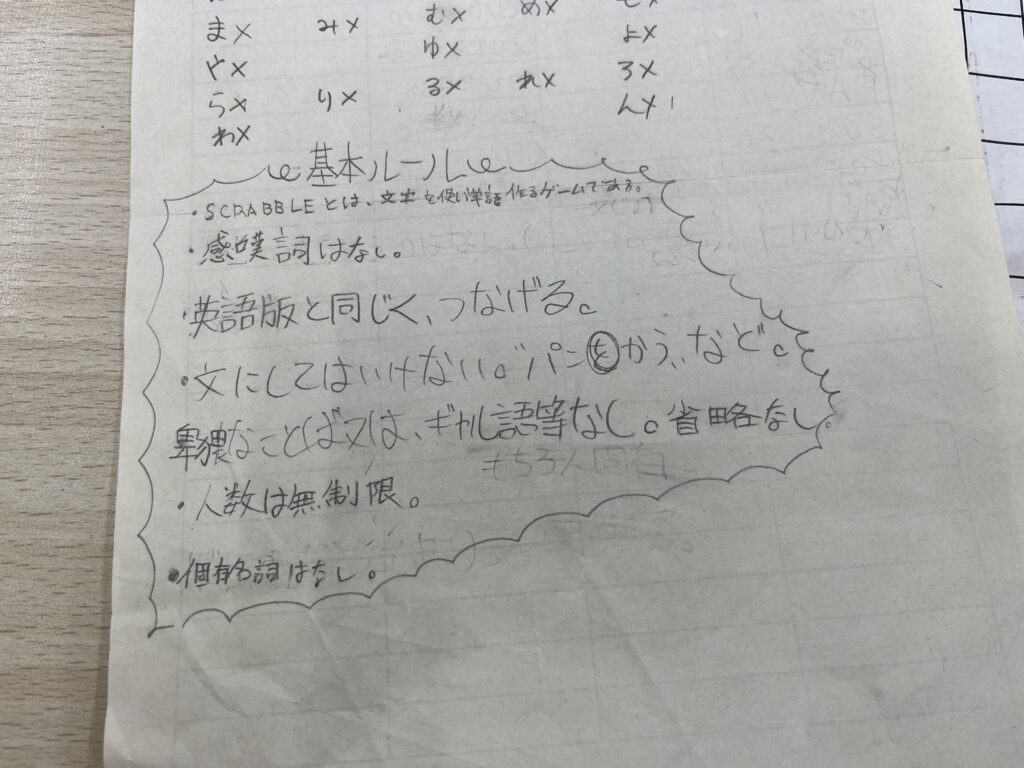 まx みx むx めx もx
やx ゆx よx
らx りx るx れx ろx
わx んx
基本ルール
・SCRABBLEとは、文字を使い単語作るゲームである。
・感嘆詞はなし。
・英語版と同じく、つなげる。
・文にしてはいけない。"パンをかう、など。
卑猥なことば又は、ギャル語等なし。省略なし。
もちろん固有
・人数は無制限。
・個有名詞はなし。